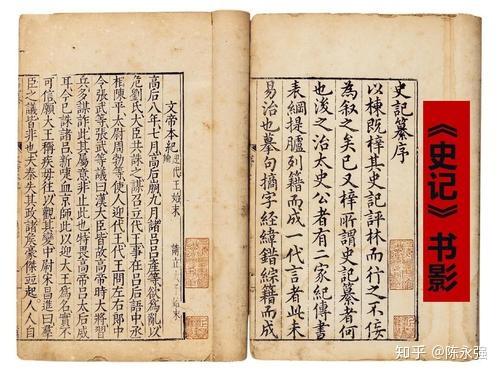 《史记》书影
史記纂序
以棟既梓其史記評林而行之不佞
為叙之矣已又梓所謂史記纂者何
也後之治太史公者有二家紀傳書
表綱提臚列籍而成一代言者此未
易治也摹句摘字經緯錯綜籍而成
文帝本紀 迎代王始末
高后八年七月高后崩九月諸呂呂產等欲為亂以
危劉氏大臣共誅之謀召立代王事在呂后語中丞
相陳平太尉周勃等使人迎代王代王問左右郎中
令張武等張武等議曰漢大臣皆故高帝時大將習
兵多謀詐此其屬意非止此也特畏高帝呂太后威
耳今已誅諸呂新啑血京師此以迎大王為名實不
可信願大王稱疾毋往以觀其變中尉宋昌進曰羣
臣之議皆非也夫秦失其政諸侯豪傑竝起人人自
知乎 @陈永强